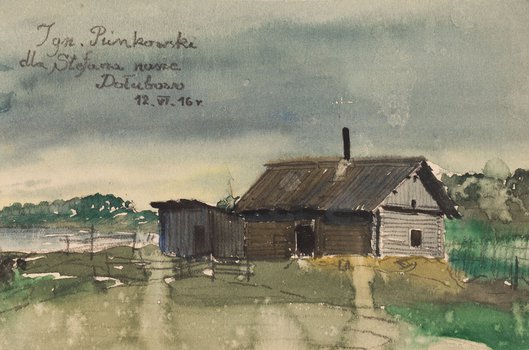 Ign. Pinkowski
dla Stefana
Dołubowo
12. VI. 16 r